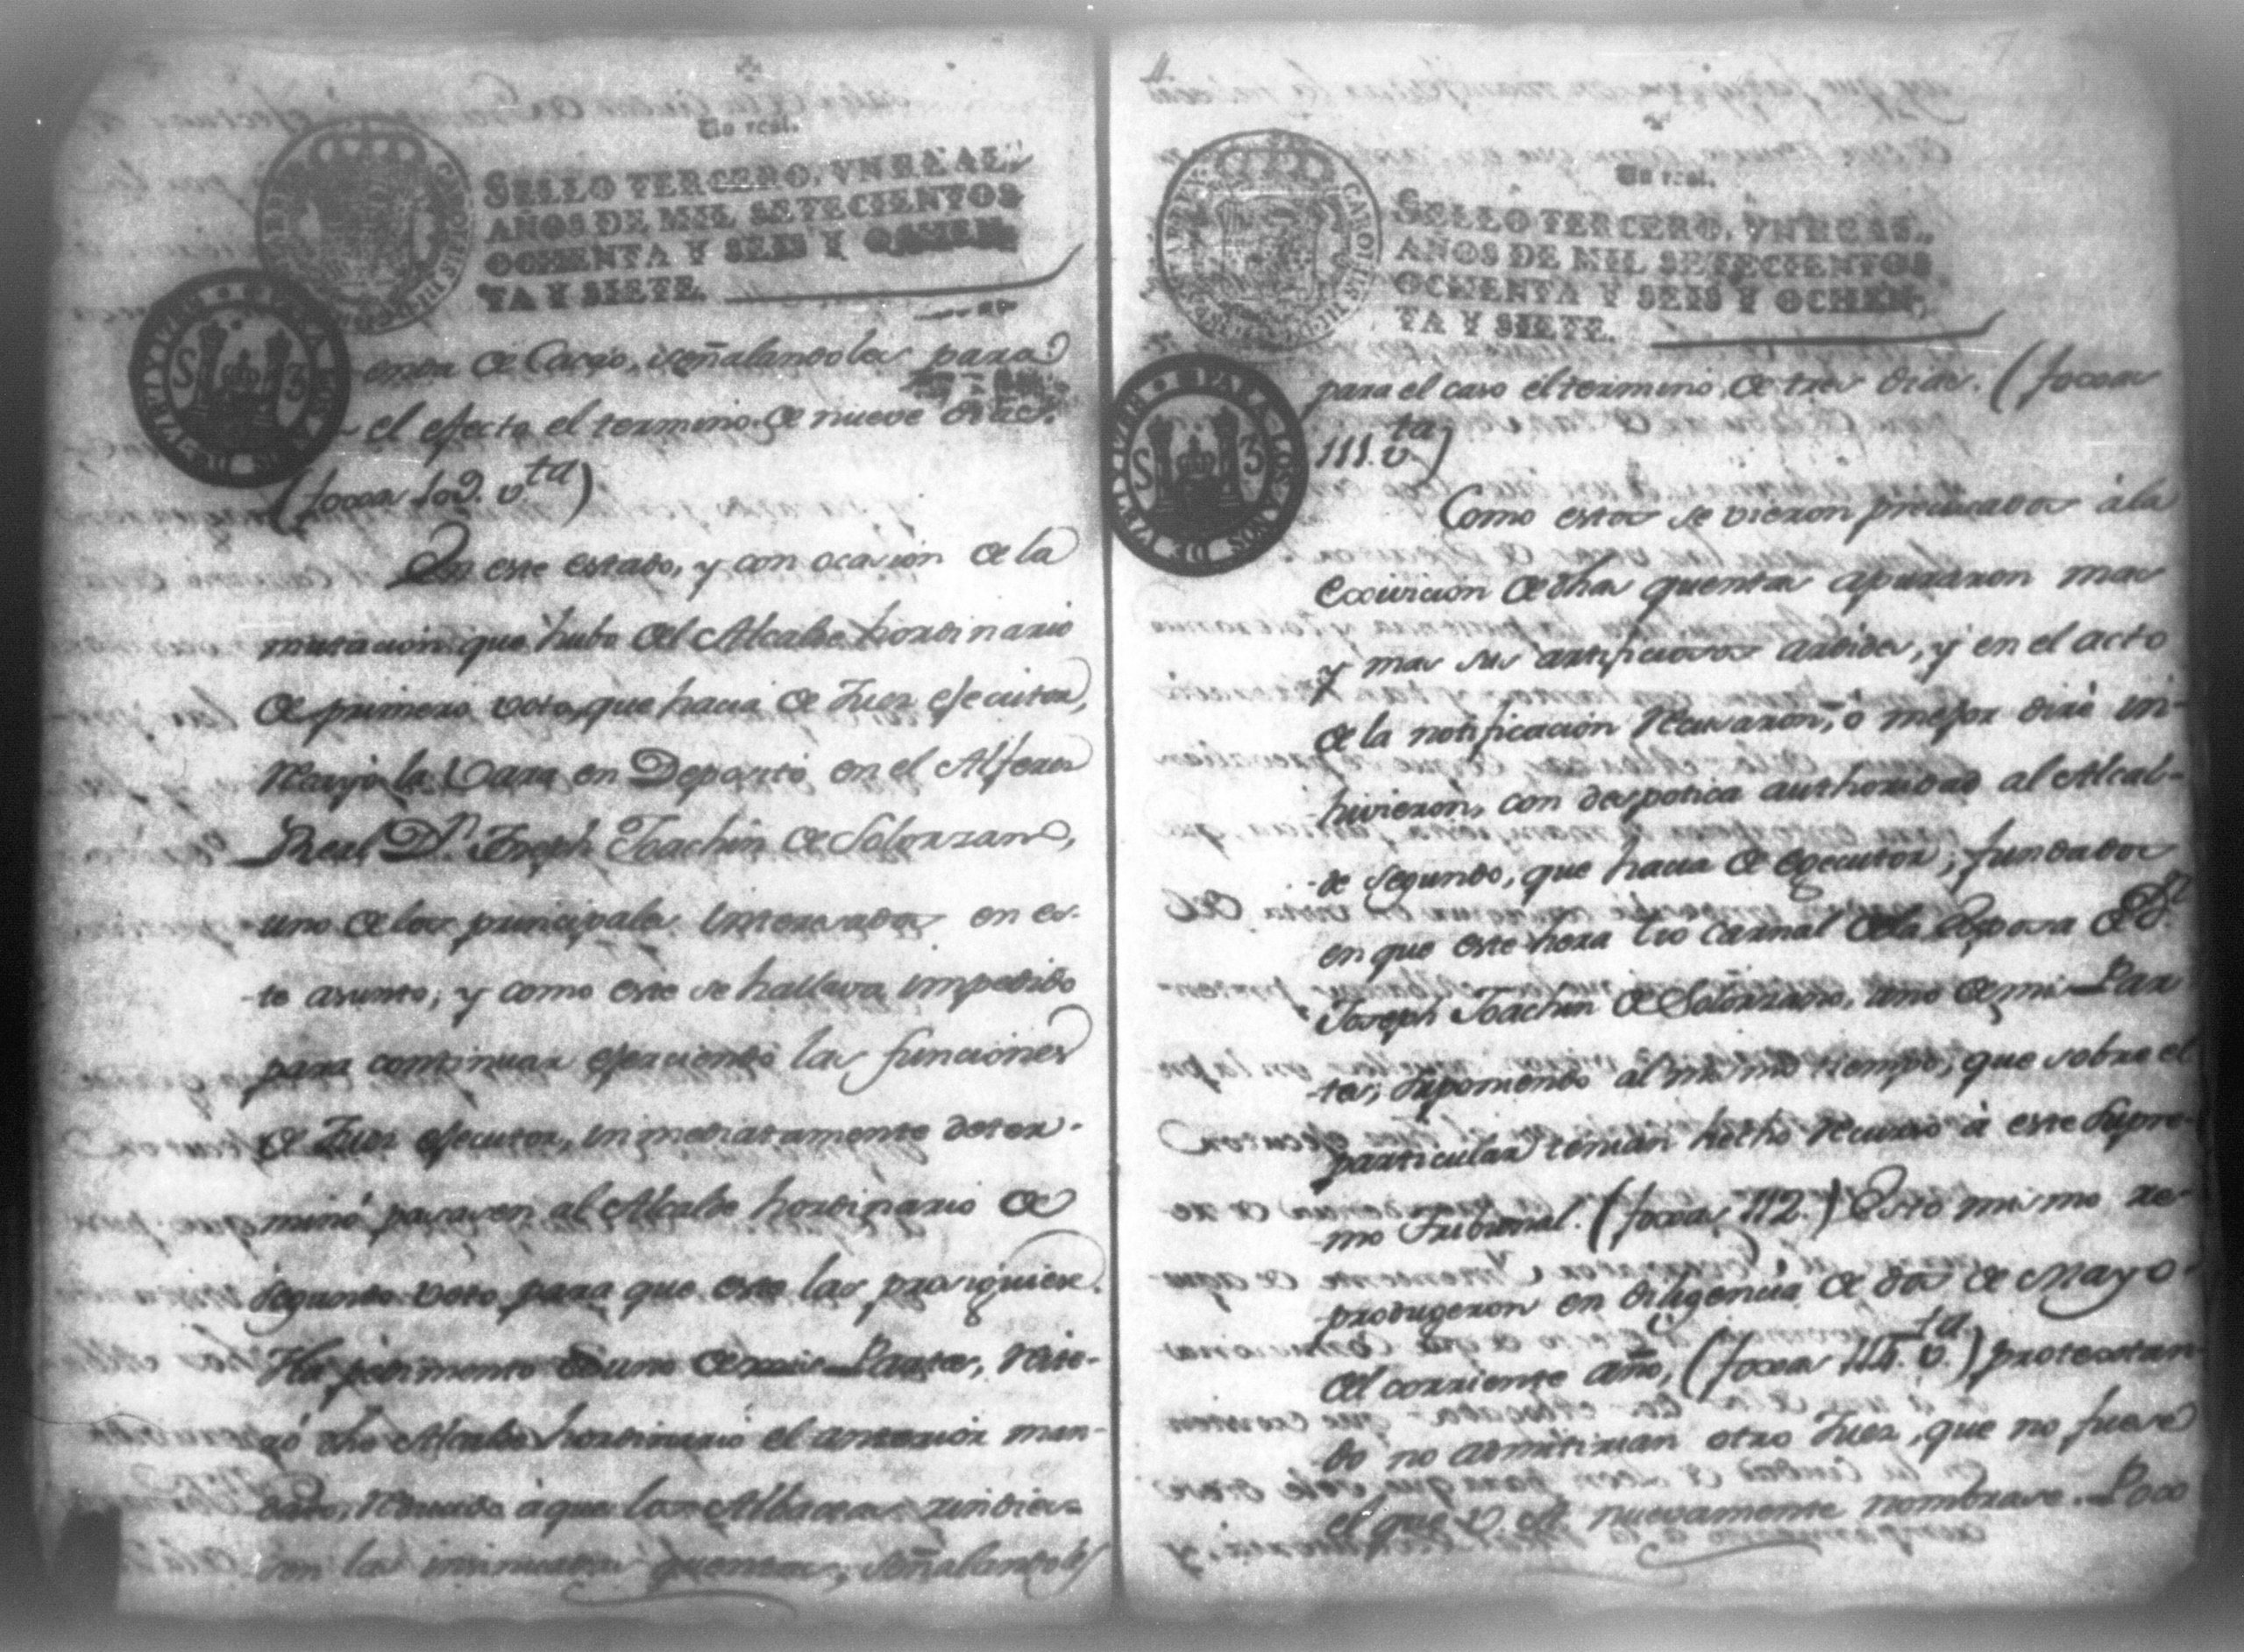 Un real.
SELLO TERCERO, VN REAL,
AÑOS DE MIL SETECIENTOS
OCHENTA Y SEIS Y OCHEN,
TA Y SIETE.
CAROLUS III
PARA LOS AÑOS DE
S 3
de Cargo, señalandoles para
el efecto el termino de nueve dias.
(foxas 109. v.ta)
En este estado, y con ocasion de la
mutacion que hubo del Alcalde hordinario
de primero voto, que hacia de Juez ejecutor,
recayó la Vara en Deposito en el Alferes
Real D.n Joseph Joachin de Solorzano,
uno de los principales interesados en es-
-te asunto; y como este se hallava impedido
para continuar ejerciendo las funciones
de Juez ejecutor, inmediatamente deter-
minó pasasen al Alcalde hordinario de
segundo voto para que este las prosiguiese.
Ha pedimento de uno de mis Partes, reite-
ró dho Alcalde hordinario el anterior man-
dato, reducido á que los Albaceas rindie-
sen las quentas, señalandoles
Un real.
SELLO TERCERO, VN REAL,
AÑOS DE MIL SETECIENTOS
OCHENTA Y SEIS Y OCHEN,
TA Y SIETE.
CAROLUS III
PARA LOS AÑOS DE
S 3
para el caso el termino de tres dias. (foxas
111. v.ta)
Como estos se vieron precisados á la
exivicion de dhas quentas apuraron mas
y mas sus artificiosos ardides, y en el acto
de la notificacion recusaron, ó mejor diré in-
hivieron, con despotica authoridad al Alcal-
-de segundo, que hacia de egecutor, fundados
en que este hera tio carnal de la Esposa de D.n
Joseph Joachin de Solorzano, uno de mis Par-
-tes, suponiendo al mismo tiempo, que sobre el
particular tenian hecho recurso á este Supre-
-mo Tribunal. (foxas 112.) Esto mismo re-
-produgeron en diligencia de dos de Mayo
del corriente año, (foxas 114. v.ta) protestan-
do no admitirian otro Juez, que no fuese
el que V. A. nuevamente nombrase. Poco